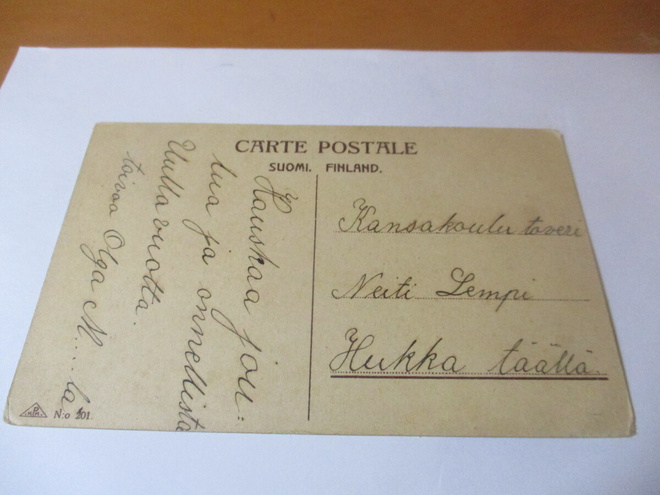 CARTE POSTALE
SUOMI. FINLAND.
Hauskaa jou:
lua ja onnellista
Uutta vuotta.
toivoo Olga M....la
Kansakoulu toveri
Neiti Lempi
Hukka täällä.
N:o 201.